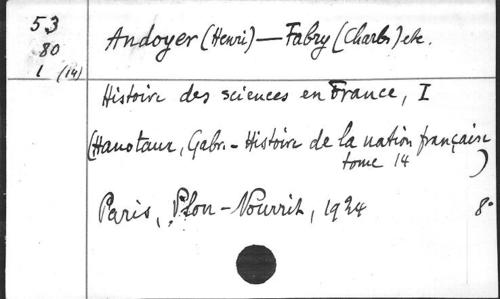 53
80
1 (14)
Andoyer (Henri) — Fabry (Charles) etc.
Histoire des sciences en France, I
(Hanotaux, Gabr. - Histoire de la nation française
tome 14 )
Paris, Plon-Nourrit, 1924 8°